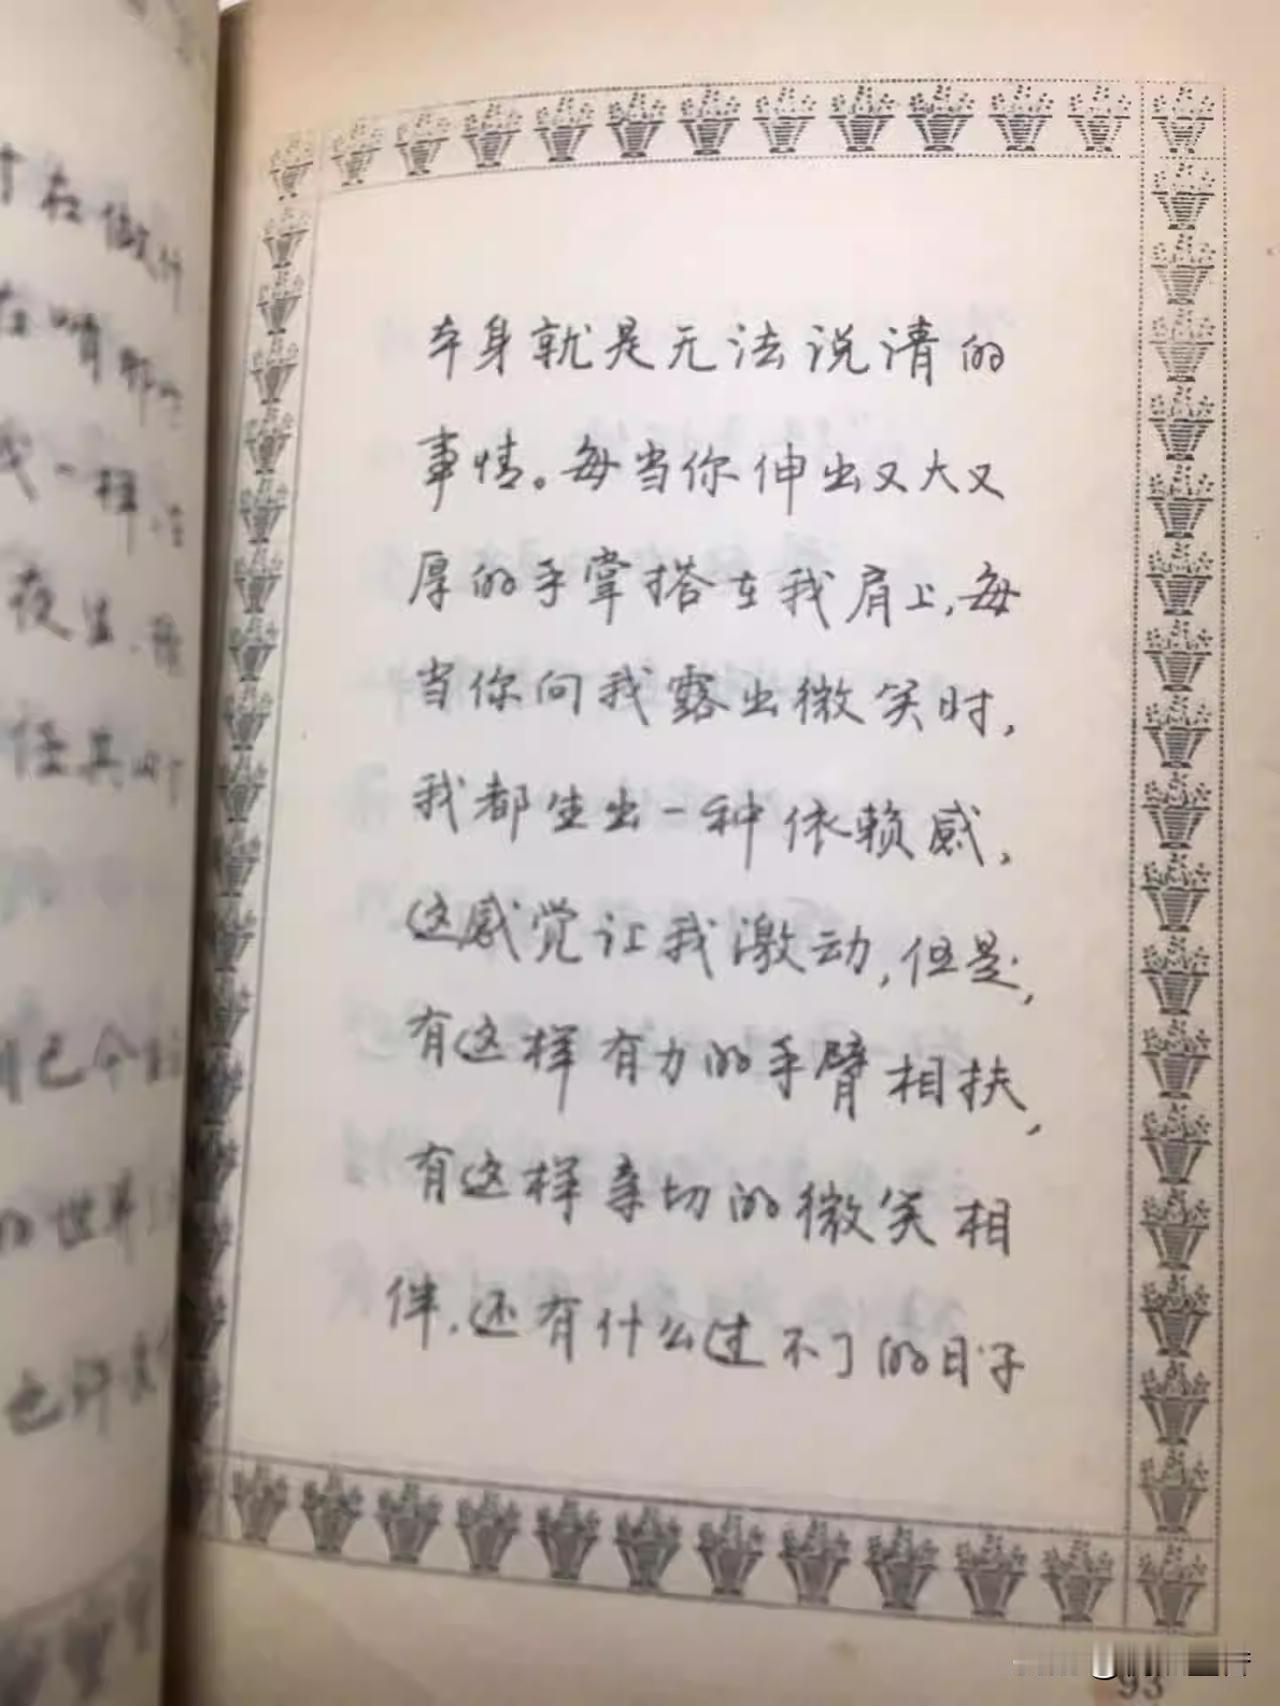 才在做什
在哨那
我一样
夜生
怪其时
自己个
的世界
也许
本身就是无法说清的
事情。每当你伸出又大又
厚的手掌搭在我肩上,每
当你向我露出微笑时,
我都生出一种依赖感,
这感觉让我激动,但是,
有这样有力的手臂相扶,
有这样亲切的微笑相
伴,还有什么过不了的日子
93